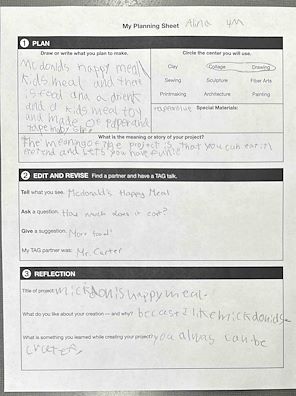 My Planning Sheet Alina 4M
1 PLAN
Draw or write what you plan to make.
Mcdonlds Happy meal
kids meal and that
is food and a drient
and a kids meal toy
and made of paper and
tape
Circle the center you will use.
Clay Collage Drawing
Sewing Sculpture Fiber Arts
Printmaking Architecture Painting
Special Materials:
What is the meaning or story of your project?
The meaning of the project is that you can eat it
pretend and lets you have fun
2 EDIT AND REVISE Find a partner and have a TAG talk.
Tell what you see. Mcdonald's Happy Meal
Ask a question. How much does it cost?
Give a suggestion. More food!
My TAG partner was: Mr. Carter
3 REFLECTION
Title of project: mickdonis happy meal.
What do you like about your creation — and why? becase I like mickdonids
What is something you learned while creating your project? you alwas can be
crater.